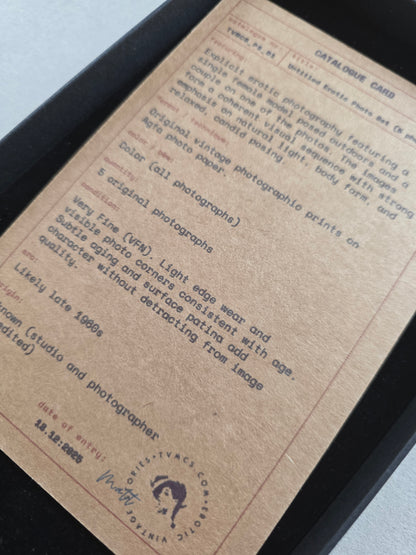 CATALOGUE CARD
catalogue
TVMCS_PS_01
title:
Untitled Erotic Photo Set (5
featuring:
Explicit erotic photography featuring a
single female model posed outdoors and a
couple on one of the photos. The images
form a coherent visual sequence with strong
emphasis on natural light, body form, and
relaxed, candid posing
format / technique:
Original vintage photographic prints on
Agfa photo paper.
color / b&w:
Color (all photographs)
quantity:
5 original photographs
condition:
Very Fine (VFN). Light edge wear and
visible photo corners consistent with age.
Subtle aging and surface patina add
character without detracting from image
quality.
era:
Likely late 1960s
origin:
nknown (studio and photographer
edited)
date of entry:
18.12.2025
TVMCS.COM EROTIC VINTAGE